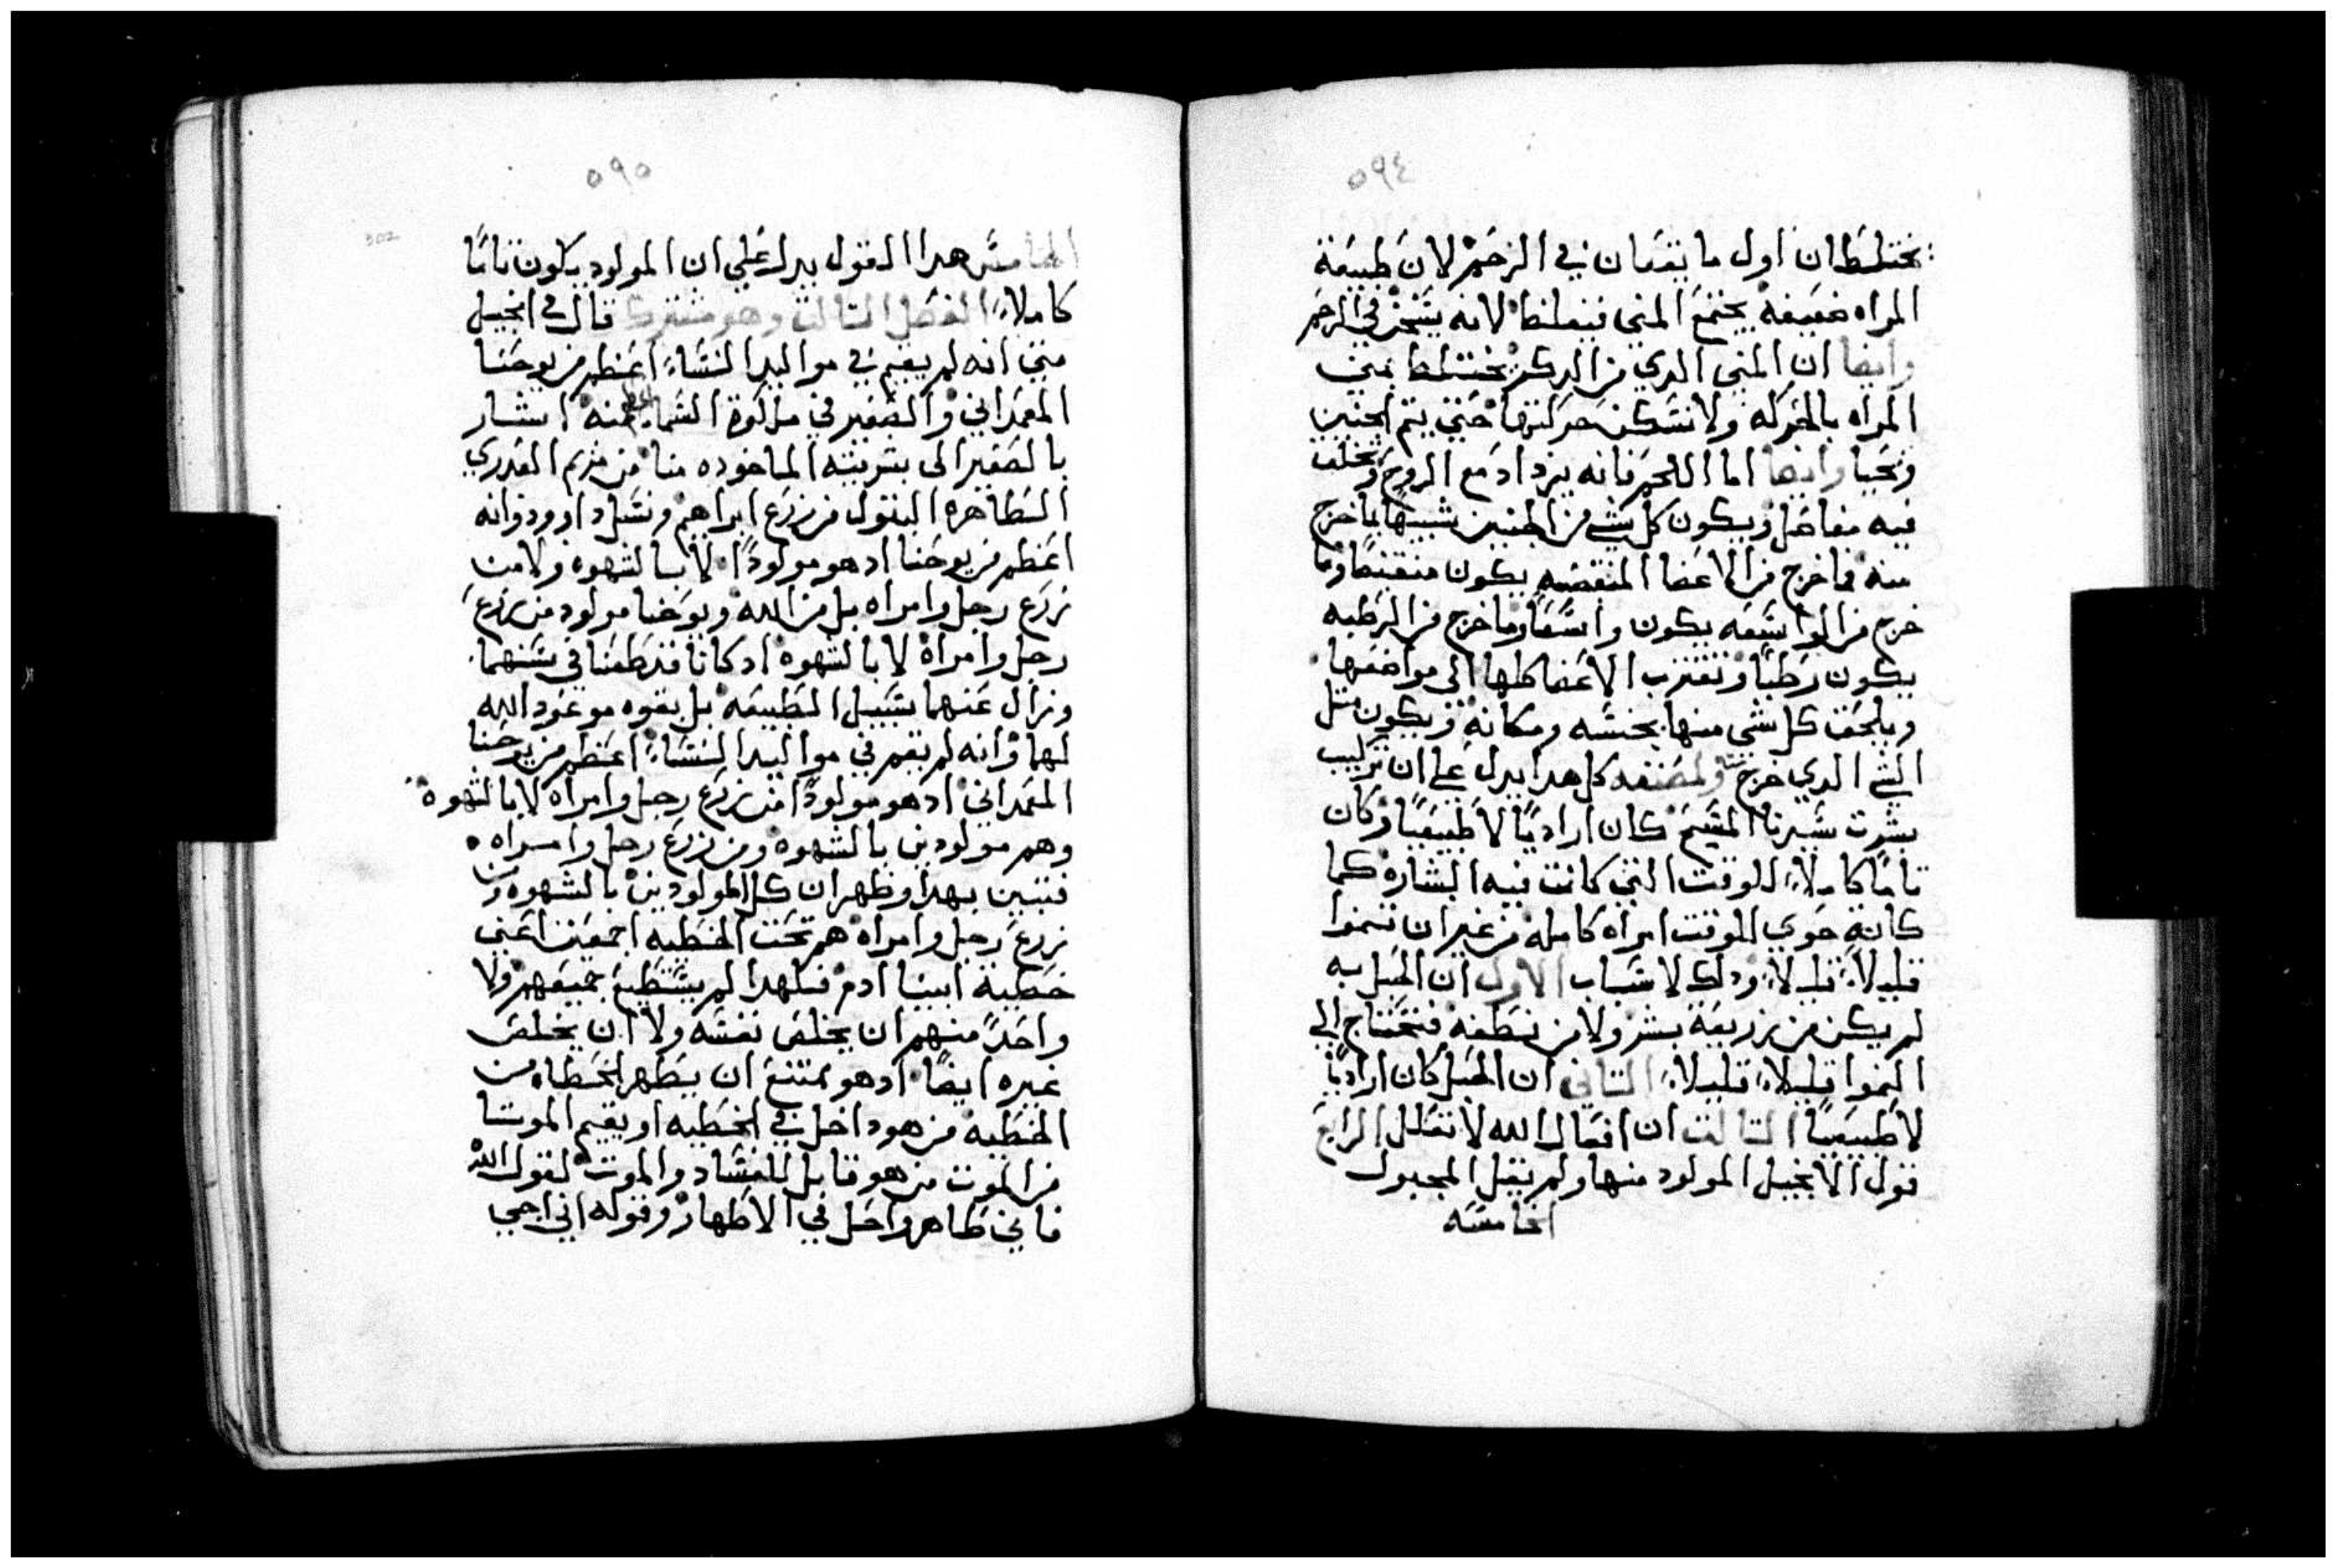 ٥٩٤
يختلطان اول ما يقعان في الرحم لان طبيعة
المراه ضعيفه يجتمع المني فيغلظ لانه يسخن في الرحم
وايضا ان المني الدي من الدكر يختلط بمني
المراه بالحركه ولا تسكن حركتها حتي يتم الجنين
ويحيا وايضا اما اللحم فانه يزداد مع الروح وتخلف
فيه مفاصل ويكون كل شي من الجنين شبيها بما خرج
منه فما خرج من الاعضا المنقضه يكون منقبضا وما
خرج من الواسعه يكون واسعا وما خرج من الرطبه
يكون رطبا وتقترب الاعضا كلها الي مواضعها
ويلحق كل شي منها بجنسه ومكانه ويكون مثل
الشي الدي خرج منه ولمصنفه كل هدا يدل علي ان تركيب
بشرت سيدنا المسيح كان اراديا لا طبيعيا وكان
تاما كاملا للوقت التي كانت فيه البشاره كما
كانة حوي للوقت امراه كامله من غير ان تنموا
قليلا قليلا ودلك لاسباب الاول ان الحبل به
لم يكن من زريعة بشر ولا من نطفه فتحتاج الي
النموا قليلا قليلا التاني ان الحبل كان اراديا
لا طبيعيا التالت ان افعال الله لا تعلل الرابع
قول الانجيل المولود منها ولم يقل المحبول
الخامسه
٥٩٥
302
الخامس هدا القول يدل علي ان المولود يكون تاما
كاملا الفصل التالت وهو مشترك قال في انجيل
متي انه لم يقيم في مواليد النساء اعظم من يوحنا
المعمداني والصغير في ملكوة السماء اعظم منه اشار
بالصغير الى بشريته الماخوده منا من مريم العدري
الطاهره البتول من زرع ابراهيم ونسل داوود وانه
اعظم من يوحنا اد هو مولودا لا بالشهوه ولا من
زرع رجل وامراه بل من الله ويوحنا مولود من زرع
رجل وامراة لا بالشهوه اد كانا قد طعنا في سنهما
وزال عنهما سبيل الطبيعه بل بقوه موعود الله
لهما وانه لم يقم في مواليد النساء اعظم من يوحنا
المعمداني اد هو مولودا من زرع رجل وامراه لا بالشهوة
وهم مولودين بالشهوه ومن زرع رجل وامراه
فتبين بهدا وظهر ان كل المولودين بالشهوه ومن
زرع رجل وامراه هم تحت الخطيه اجمعين اعني
خطية ابينا ادم فلهدا لم يستطيع جميعهم ولا
واحدا منهم ان يخلص نفسه ولا ان يخلص
غيره ايضا اد هو ممتنع ان يطهر الخطاه من
الخطيه من هو داخل في الخطيه او يقيم الموتا
من الموت من هو قابل للفساد والموت لقول الله
فاني طاهر واحل في الاطهار وقوله اني اجي